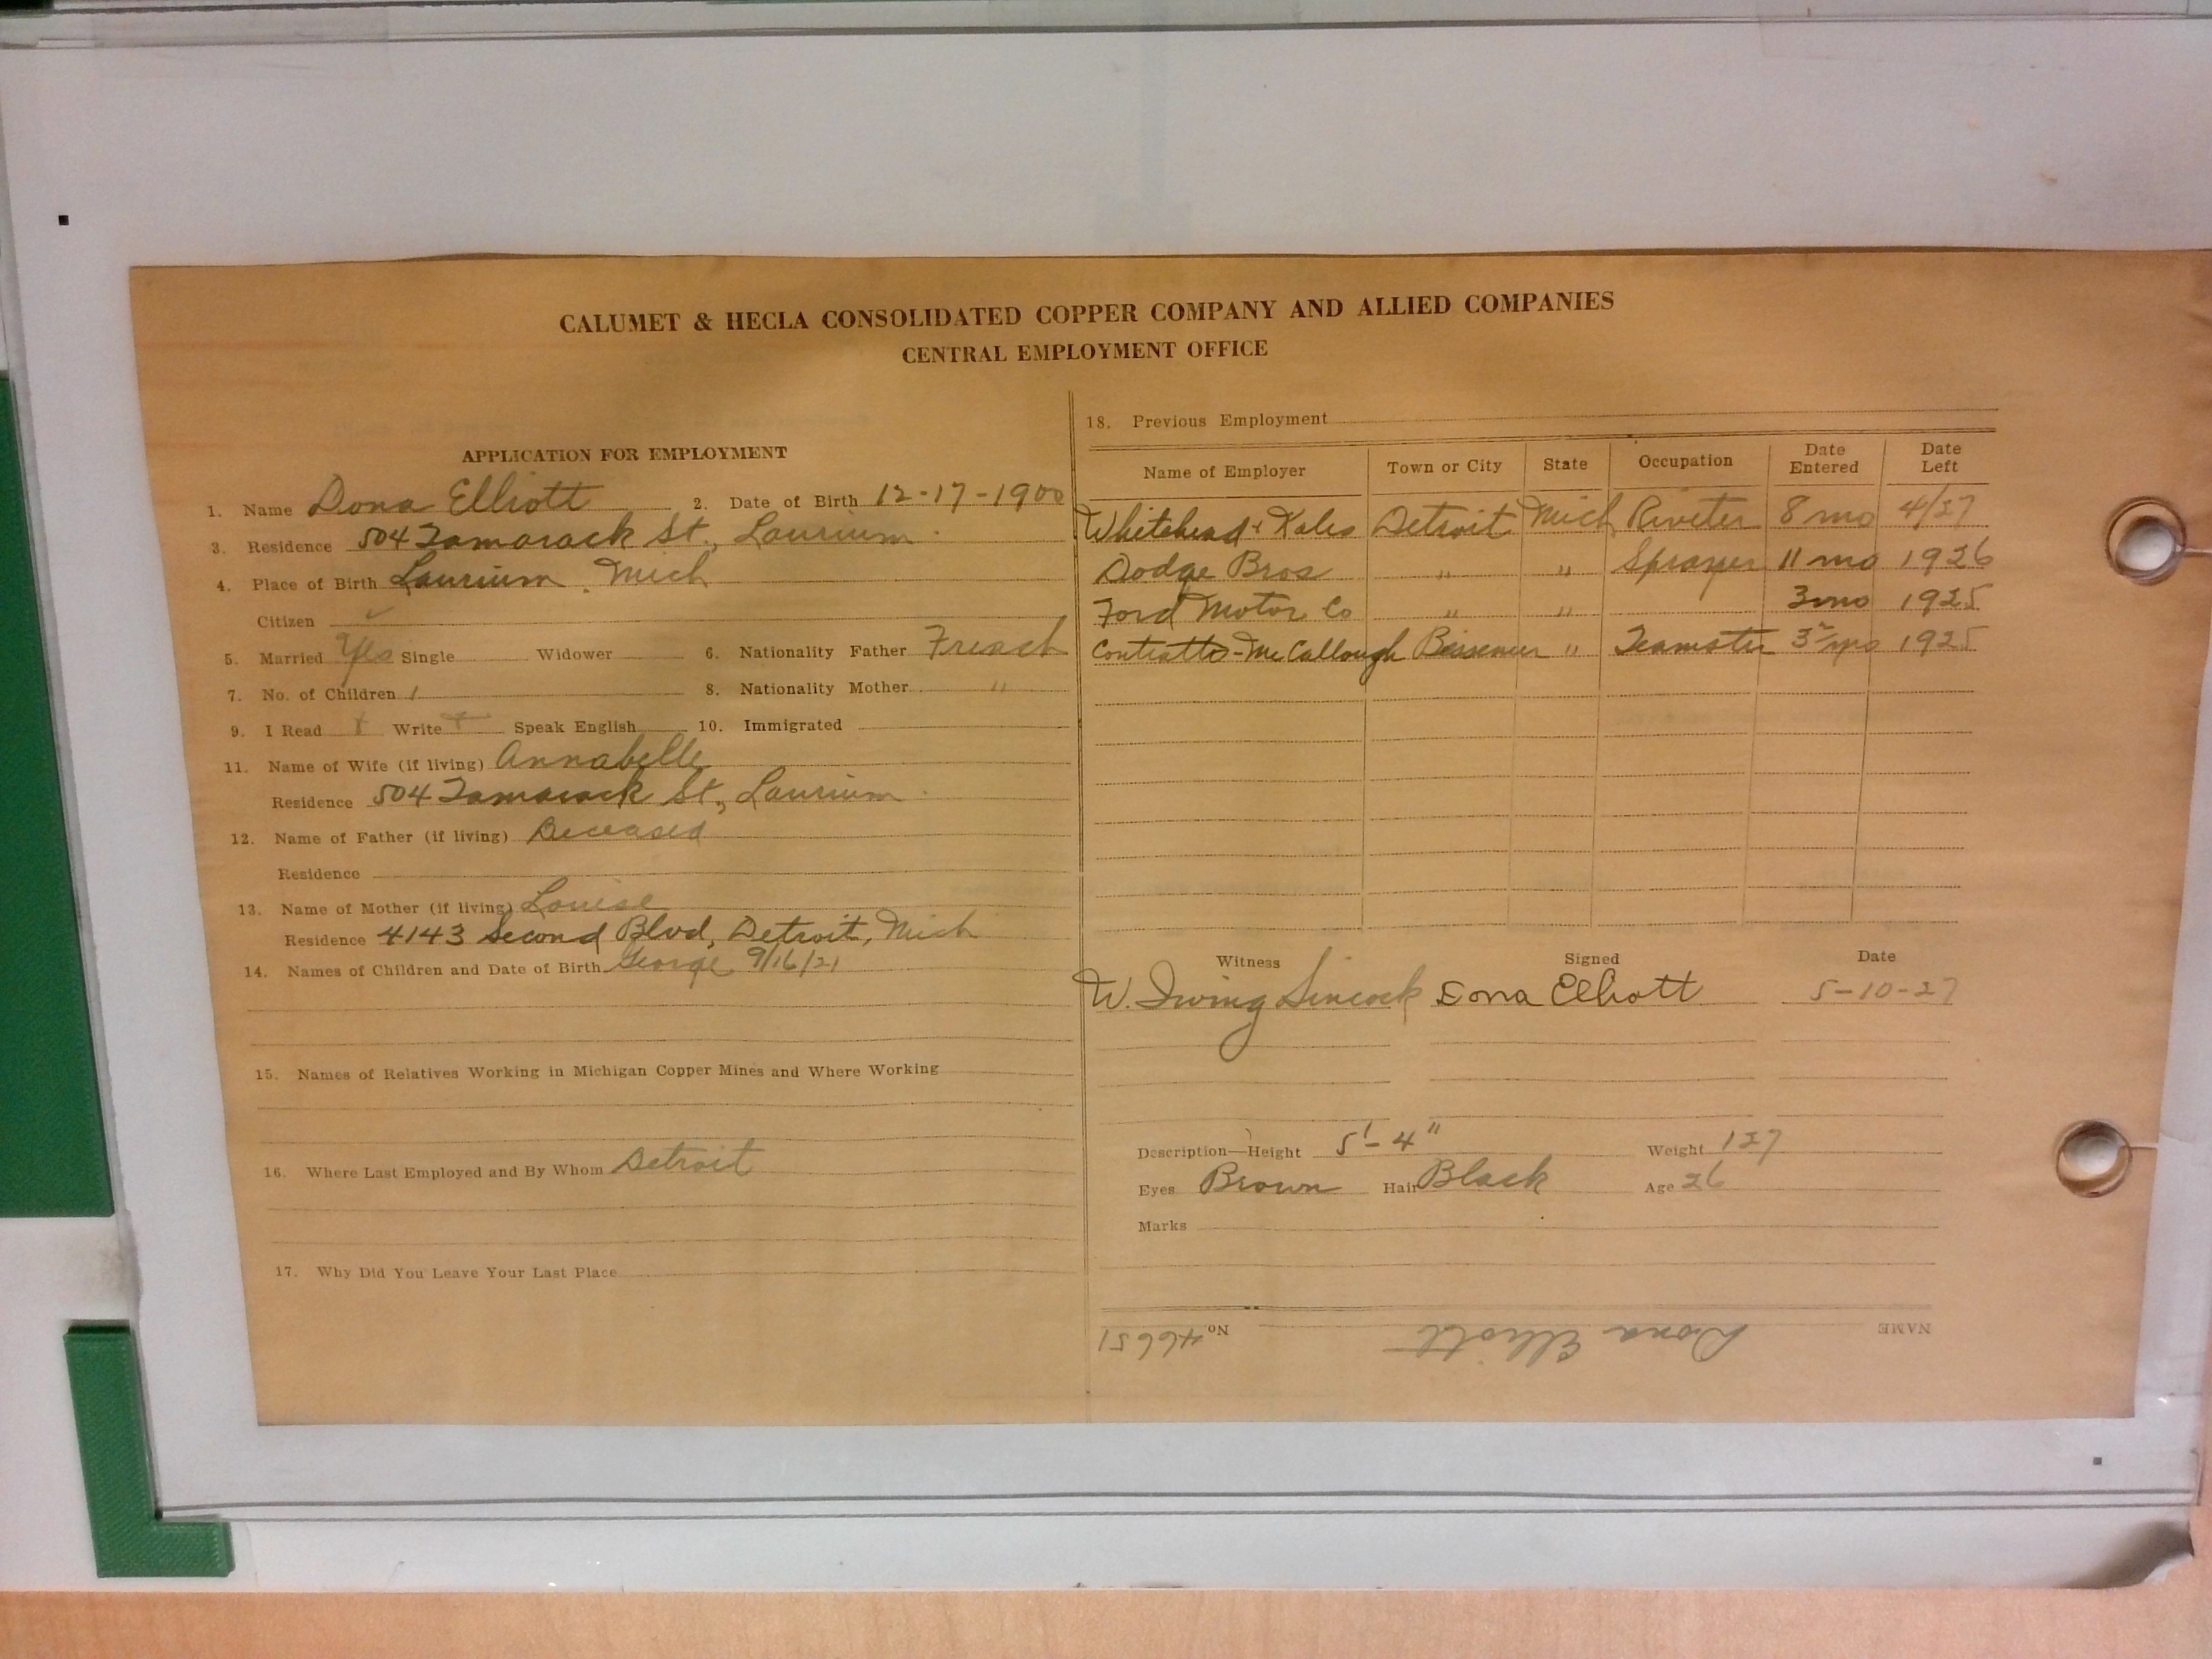 CALUMET & HECLA CONSOLIDATED COPPER COMPANY AND ALLIED COMPANIES
CENTRAL EMPLOYMENT OFFICE
APPLICATION FOR EMPLOYMENT
1. Name Dona Elliott 2. Date of Birth 12-17-1900
3. Residence 504 Tamarack St., Laurium
4. Place of Birth Laurium, Mich
Citizen ✓
5. Married Yes Single Widower 6. Nationality Father French
7. No. of Children 1 8. Nationality Mother "
9. I Read Write Speak English 10. Immigrated
11. Name of Wife (if living) Annabelle
Residence 504 Tamarack St., Laurium
12. Name of Father (if living) Deceased
Residence
13. Name of Mother (if living) Louise
Residence 4143 Second Blvd, Detroit, Mich
14. Names of Children and Date of Birth George 9/16/21
15. Names of Relatives Working in Michigan Copper Mines and Where Working
16. Where Last Employed and By Whom Detroit
17. Why Did You Leave Your Last Place
18. Previous Employment
Name of Employer Town or City State Occupation Date Entered Date Left
Whitehead & Kales Detroit Mich Riveter 8 mo 4/27
Dodge Bros " " Sprayer 11 mo 1926
Ford Motor Co " " 3 mo 1925
McCallough Bessemer " Teamster 1925
Witness Signed Date
W. Irving Sincock Dona Elliott 5-10-27
Description—Height 5'-4" Weight 127
Eyes Brown Hair Black Age 26
Marks
NAME Dona Elliott No. 46651